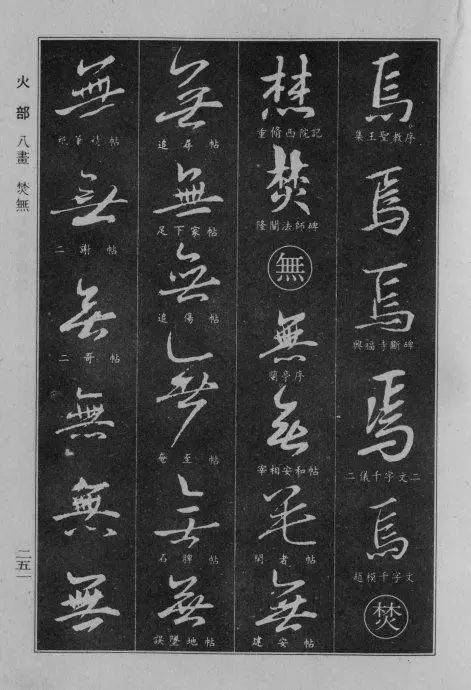 焉
集王聖教序
焉
焉
興福寺斷碑
焉
二儀千字文二
焉
趙模千字文
焚
焚
重脩西院記
焚
隆闡法師碑
無
無
蘭亭序
無
宰相安和帖
無
無
建安帖
無
追尋帖
無
足下家帖
無
追傷帖
無
奄至帖
無
石脾帖
無
誤墜地帖
無
無
二謝帖
無
二哥帖
無
無
無
火部 八畫 焚無
二五一